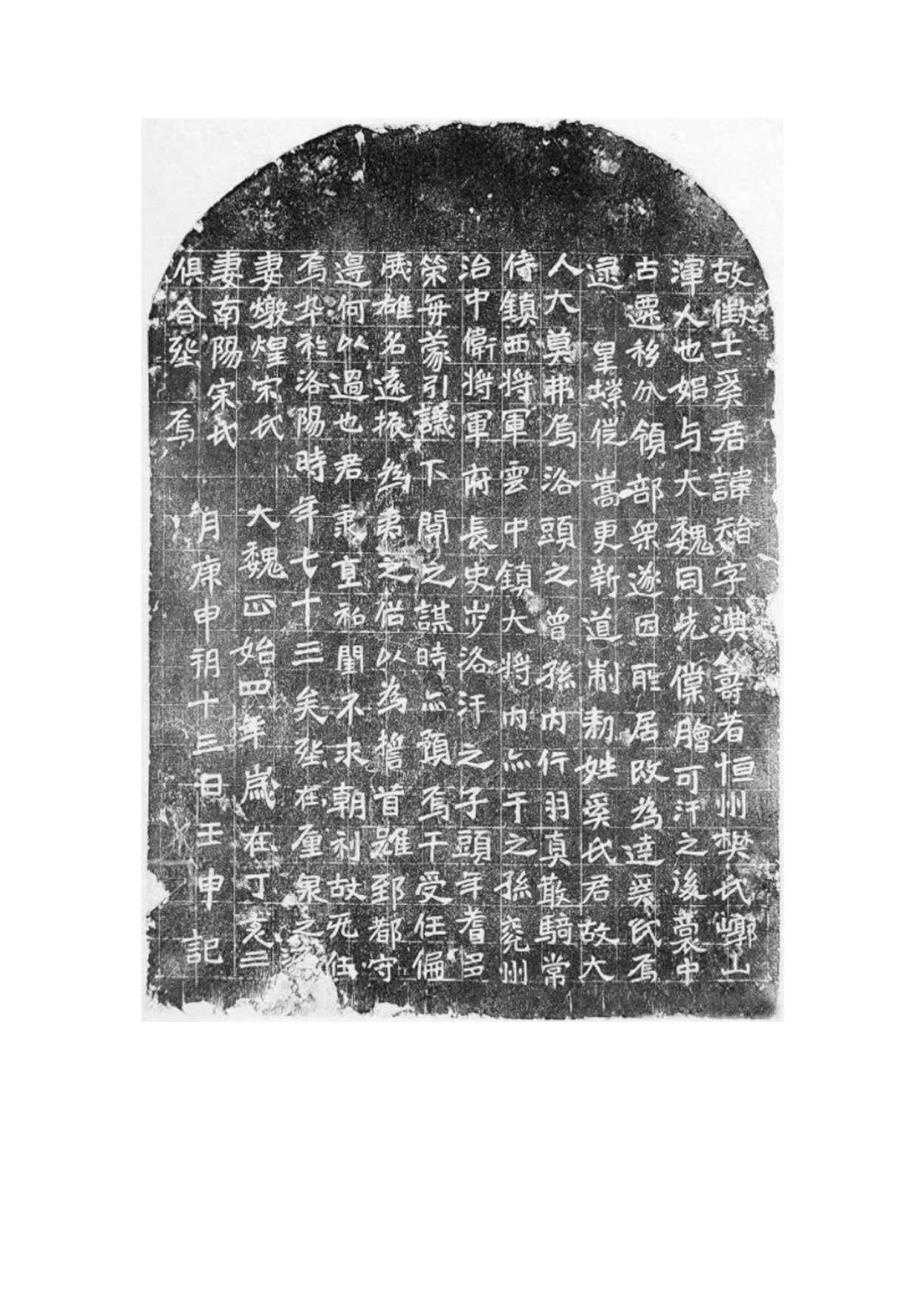 故徵士奚君諱智字淟籌者恒州樊氏嶰山
渾人也始与大魏同先僕膾可汗之後裔中
古遷移分領部衆遂因所居改為達奚氏焉
逮 皇業徙嵩更新道制勑姓奚氏君故大
人大莫弗烏洛頭之曾孫內行羽真散騎常
侍鎮西將軍雲中鎮大將內亦干之孫兗州
治中衛將軍府長史步洛汗之子頭年耆多
策每蒙引議下關之謀時亦預焉干受任偏
威雄名遠振為夷之俗以為誓首雖郅都守
邊何以過也君秉直私閨不求朝利故无任
焉卒於洛陽時年七十三矣塟在廛泉之源
妻燉煌宋氏 大魏正始四年歲在丁亥三
妻南陽宗氏 月庚申朔十三日壬申記
俱合塟焉